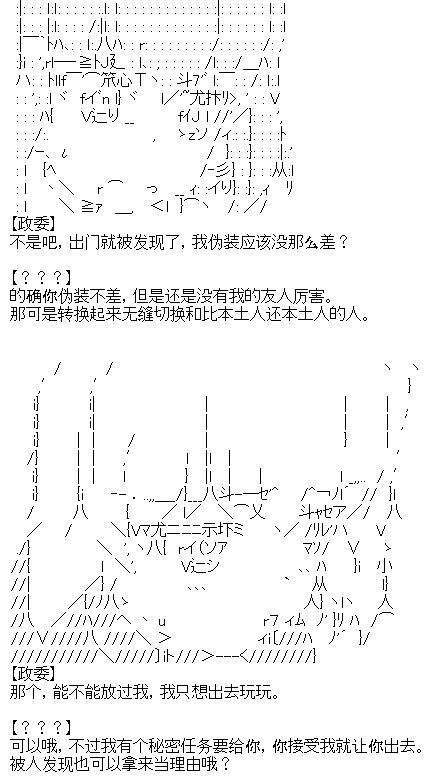 【政委】
不是吧，出门就被发现了，我伪装应该没那么差？
【？？？】
的确你伪装不差，但是还是没有我的友人厉害。
那可是转换起来无缝切换和比本土人还本土人的人。
【政委】
那个，能不能放过我，我只想出去玩玩。
【？？？】
可以哦，不过我有个秘密任务要给你，你接受我就让你出去。
被人发现也可以拿来当理由哦？